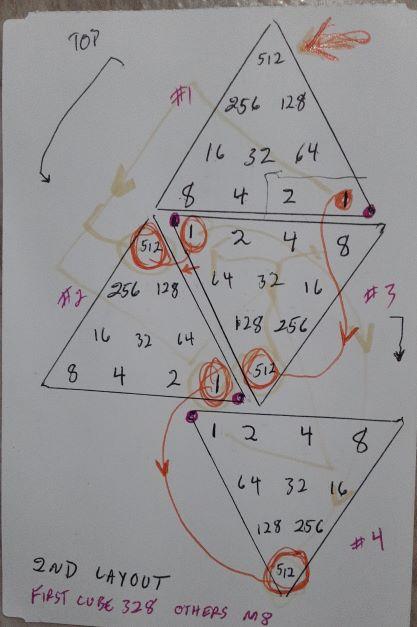 TOP
512
#1
256 128
16 32 64
8 4 2 1
512
1 2 4 8
#2
256 128
64 32 16
#3
16 32 64
128 256
8 4 2 1
512
1 2 4 8
64 32 16
128 256
#4
512
2ND LAYOUT
FIRST CUBE 328 OTHERS M8